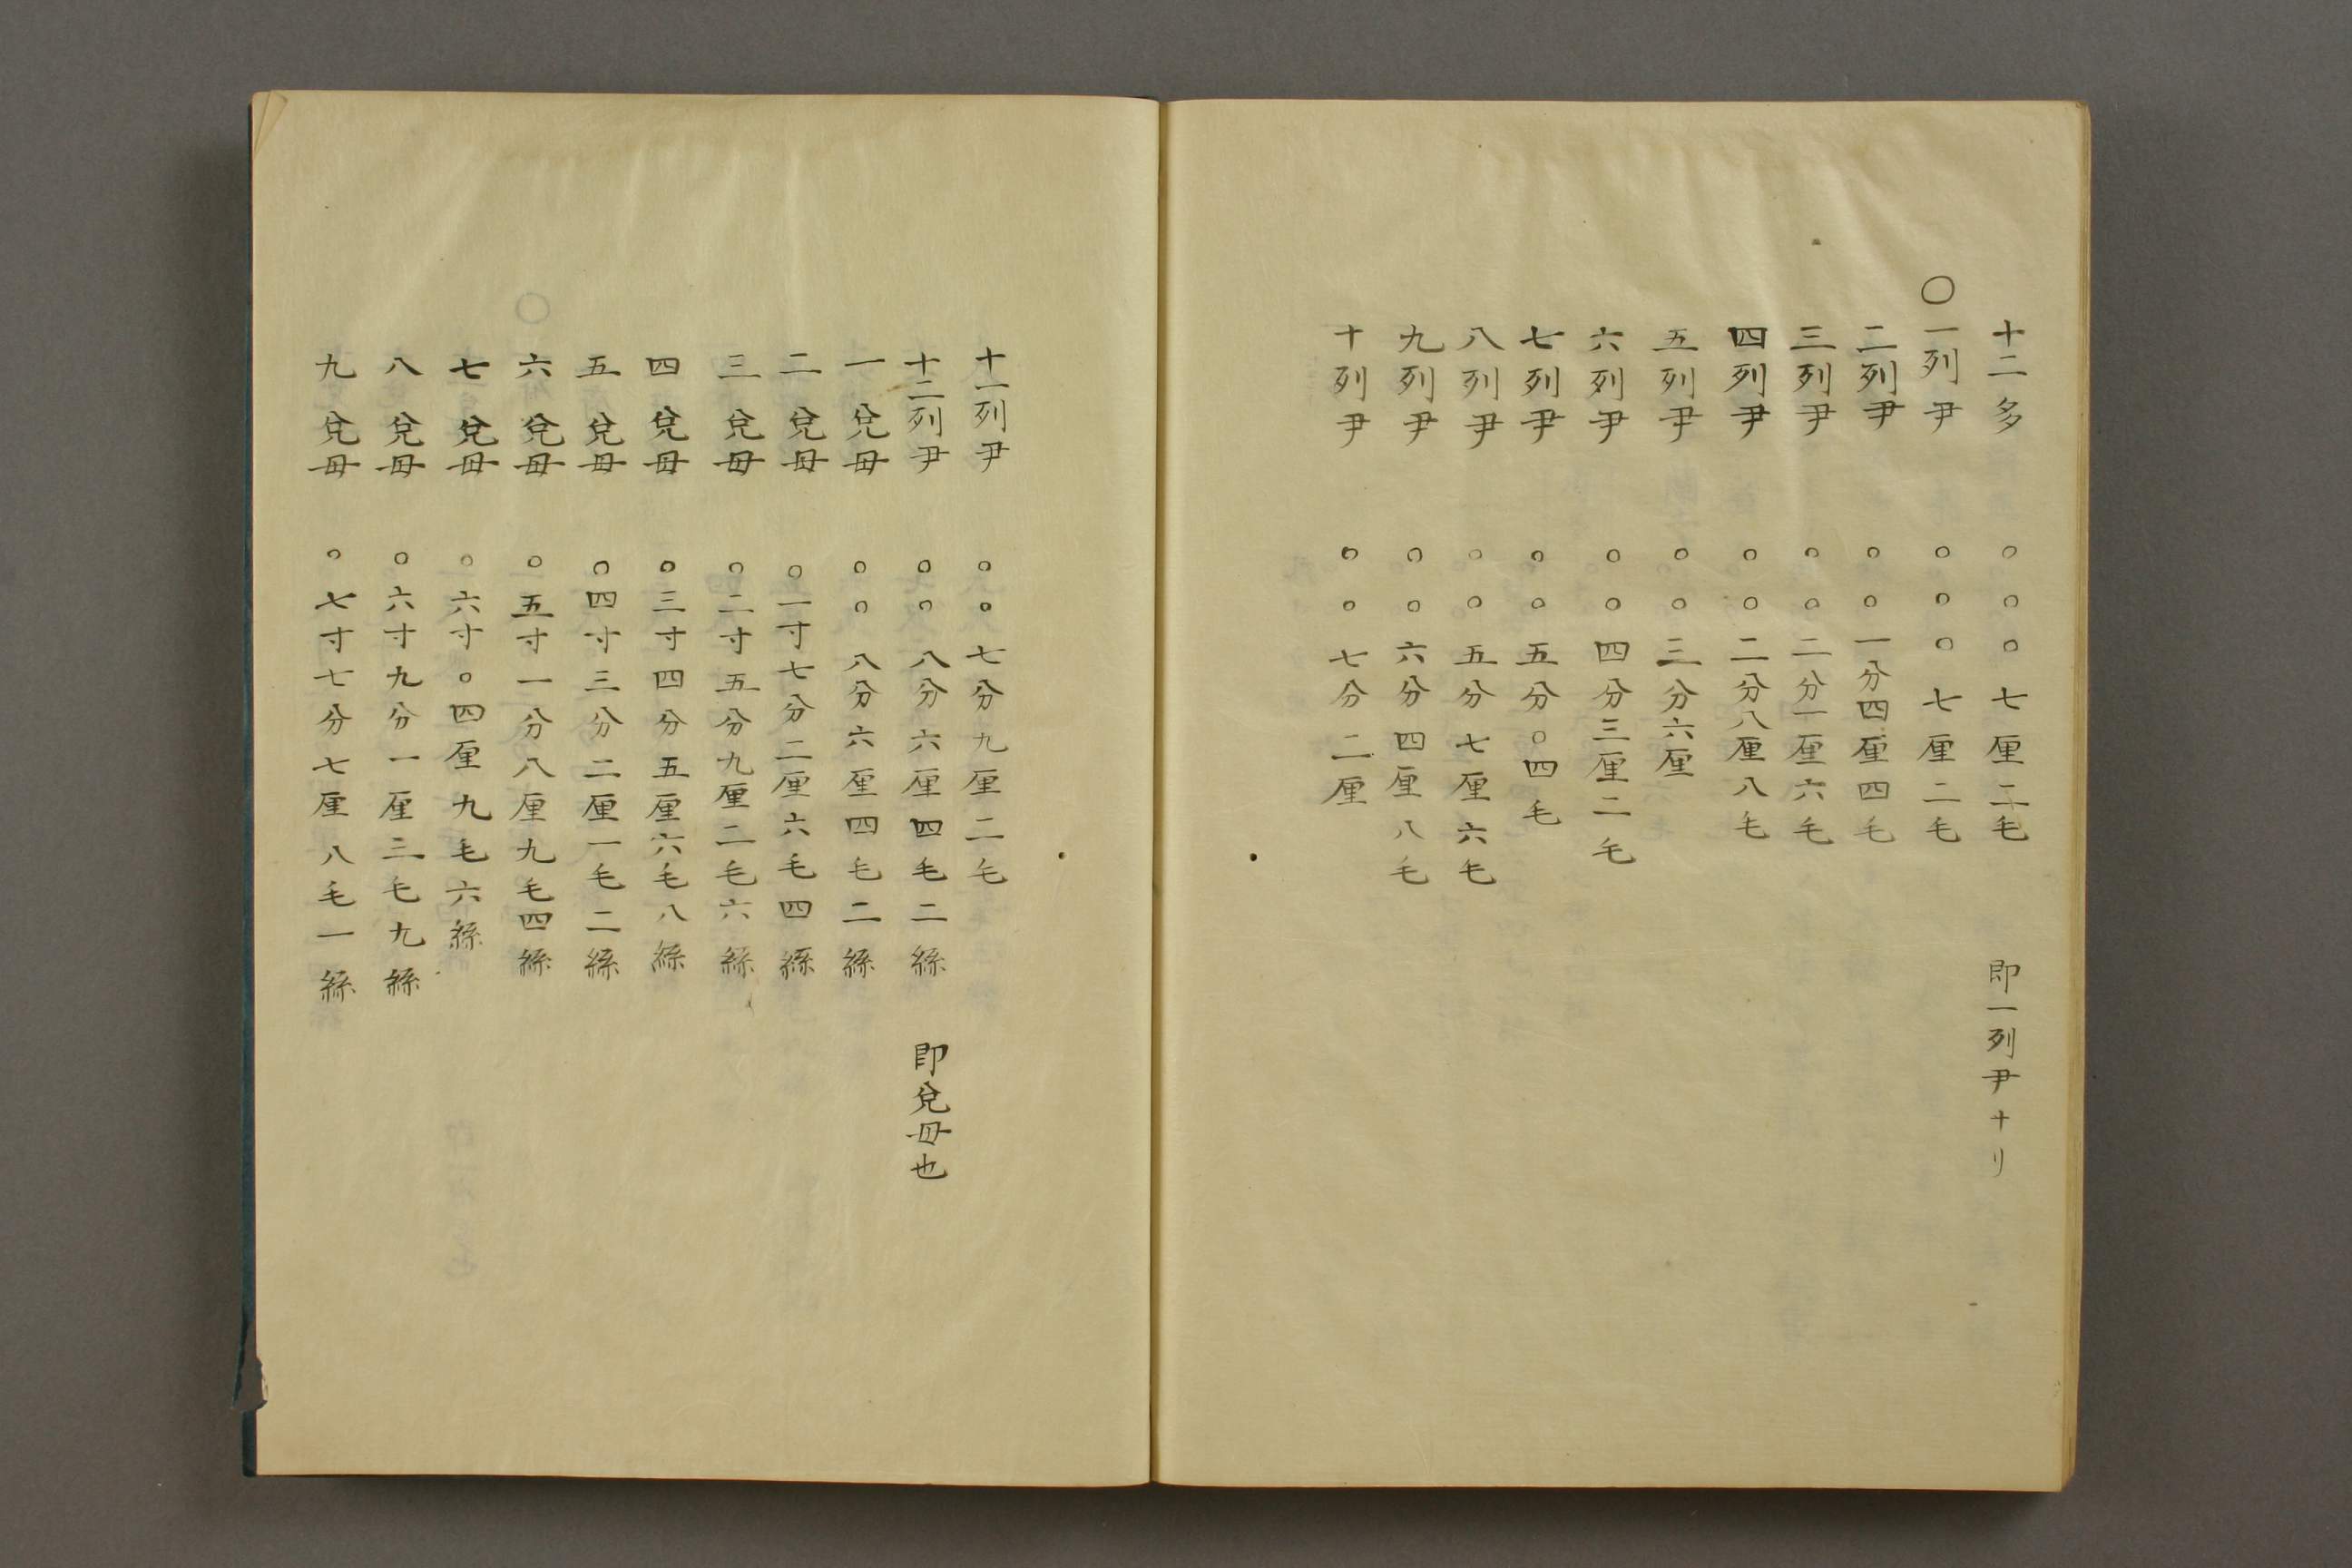 十二多 〇〇〇七厘二毛 即一列尹ナリ
〇一列尹 〇〇〇七厘二毛
二列尹 〇〇一分四厘四毛
三列尹 〇〇二分一厘六毛
四列尹 〇〇二分八厘八毛
五列尹 〇〇三分六厘
六列尹 〇〇四分三厘二毛
七列尹 〇〇五分〇四毛
八列尹 〇〇五分七厘六毛
九列尹 〇〇六分四厘八毛
十列尹 〇〇七分二厘
十一列尹 〇〇七分九厘二毛
十二列尹 〇〇八分六厘四毛二絲 即兌毋也
一兌毋 〇〇八分六厘四毛二絲
二兌毋 〇一寸七分二厘六毛四絲
三兌毋 〇二寸五分九厘二毛六絲
四兌毋 〇三寸四分五厘六毛八絲
五兌毋 〇四寸三分二厘一毛二絲
六兌毋 〇五寸一分八厘九毛四絲
七兌毋 〇六寸〇四厘九毛六絲
八兌毋 〇六寸九分一厘三毛九絲
九兌毋 〇七寸七分七厘八毛一絲